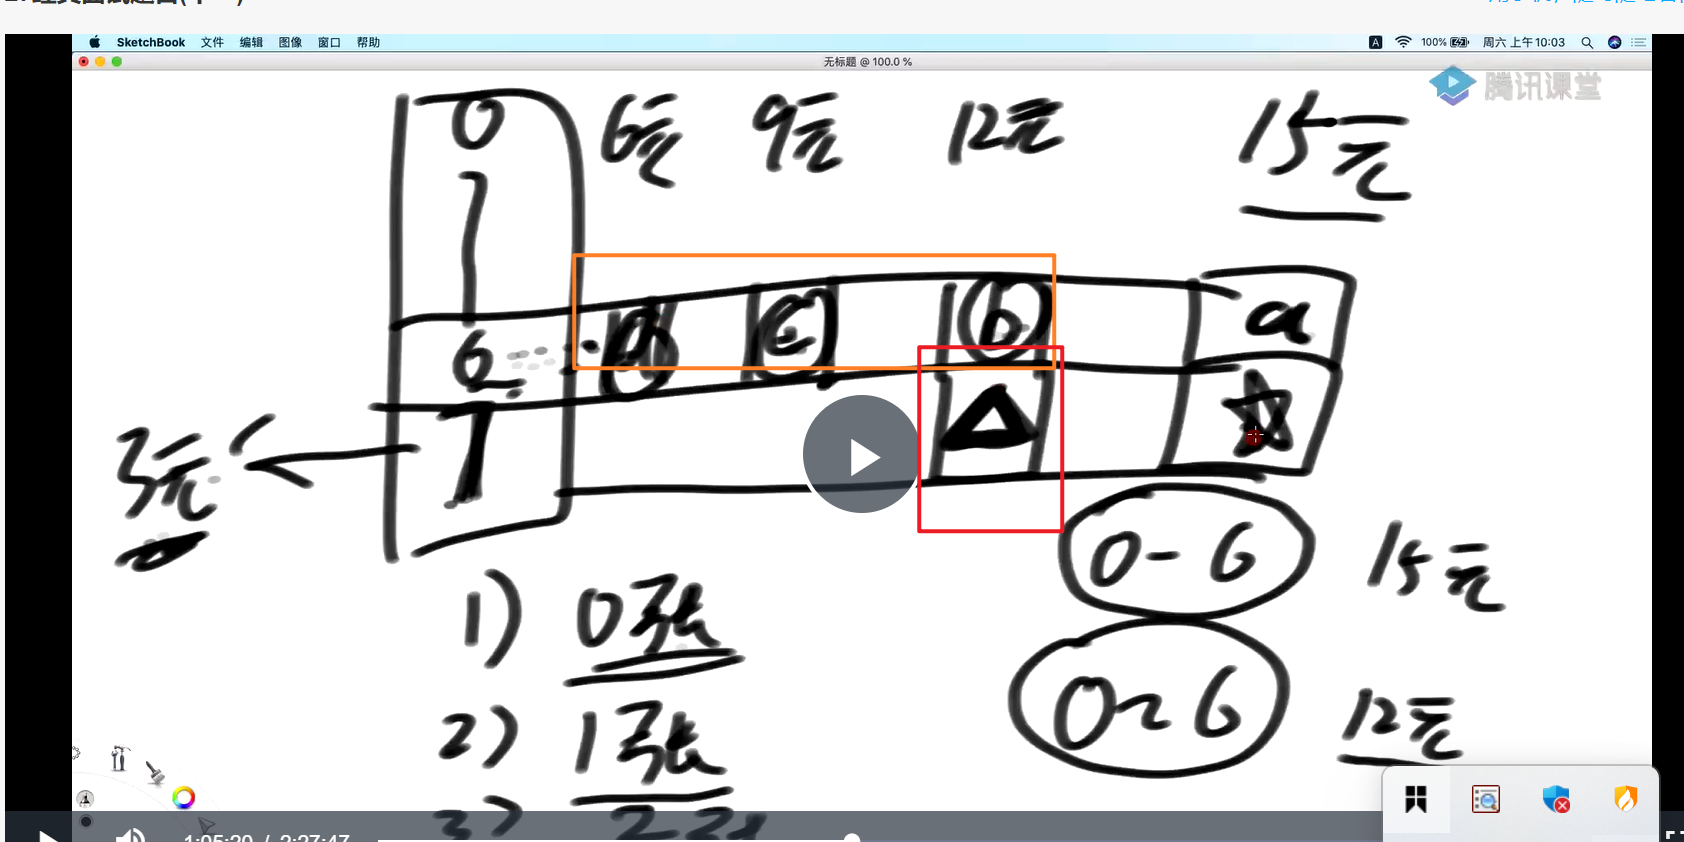 SketchBook 文件 编辑 图像 窗口 帮助
A 100% 周六 上午10:03
无标题 @ 100.0 %
腾讯课堂
0 6元 9元 12元 15元
c b a
6
7
3元
0-6 15元
1) 0张
0~6 12元
2) 1张
3) 2张
1:05:20 / 2:27:47